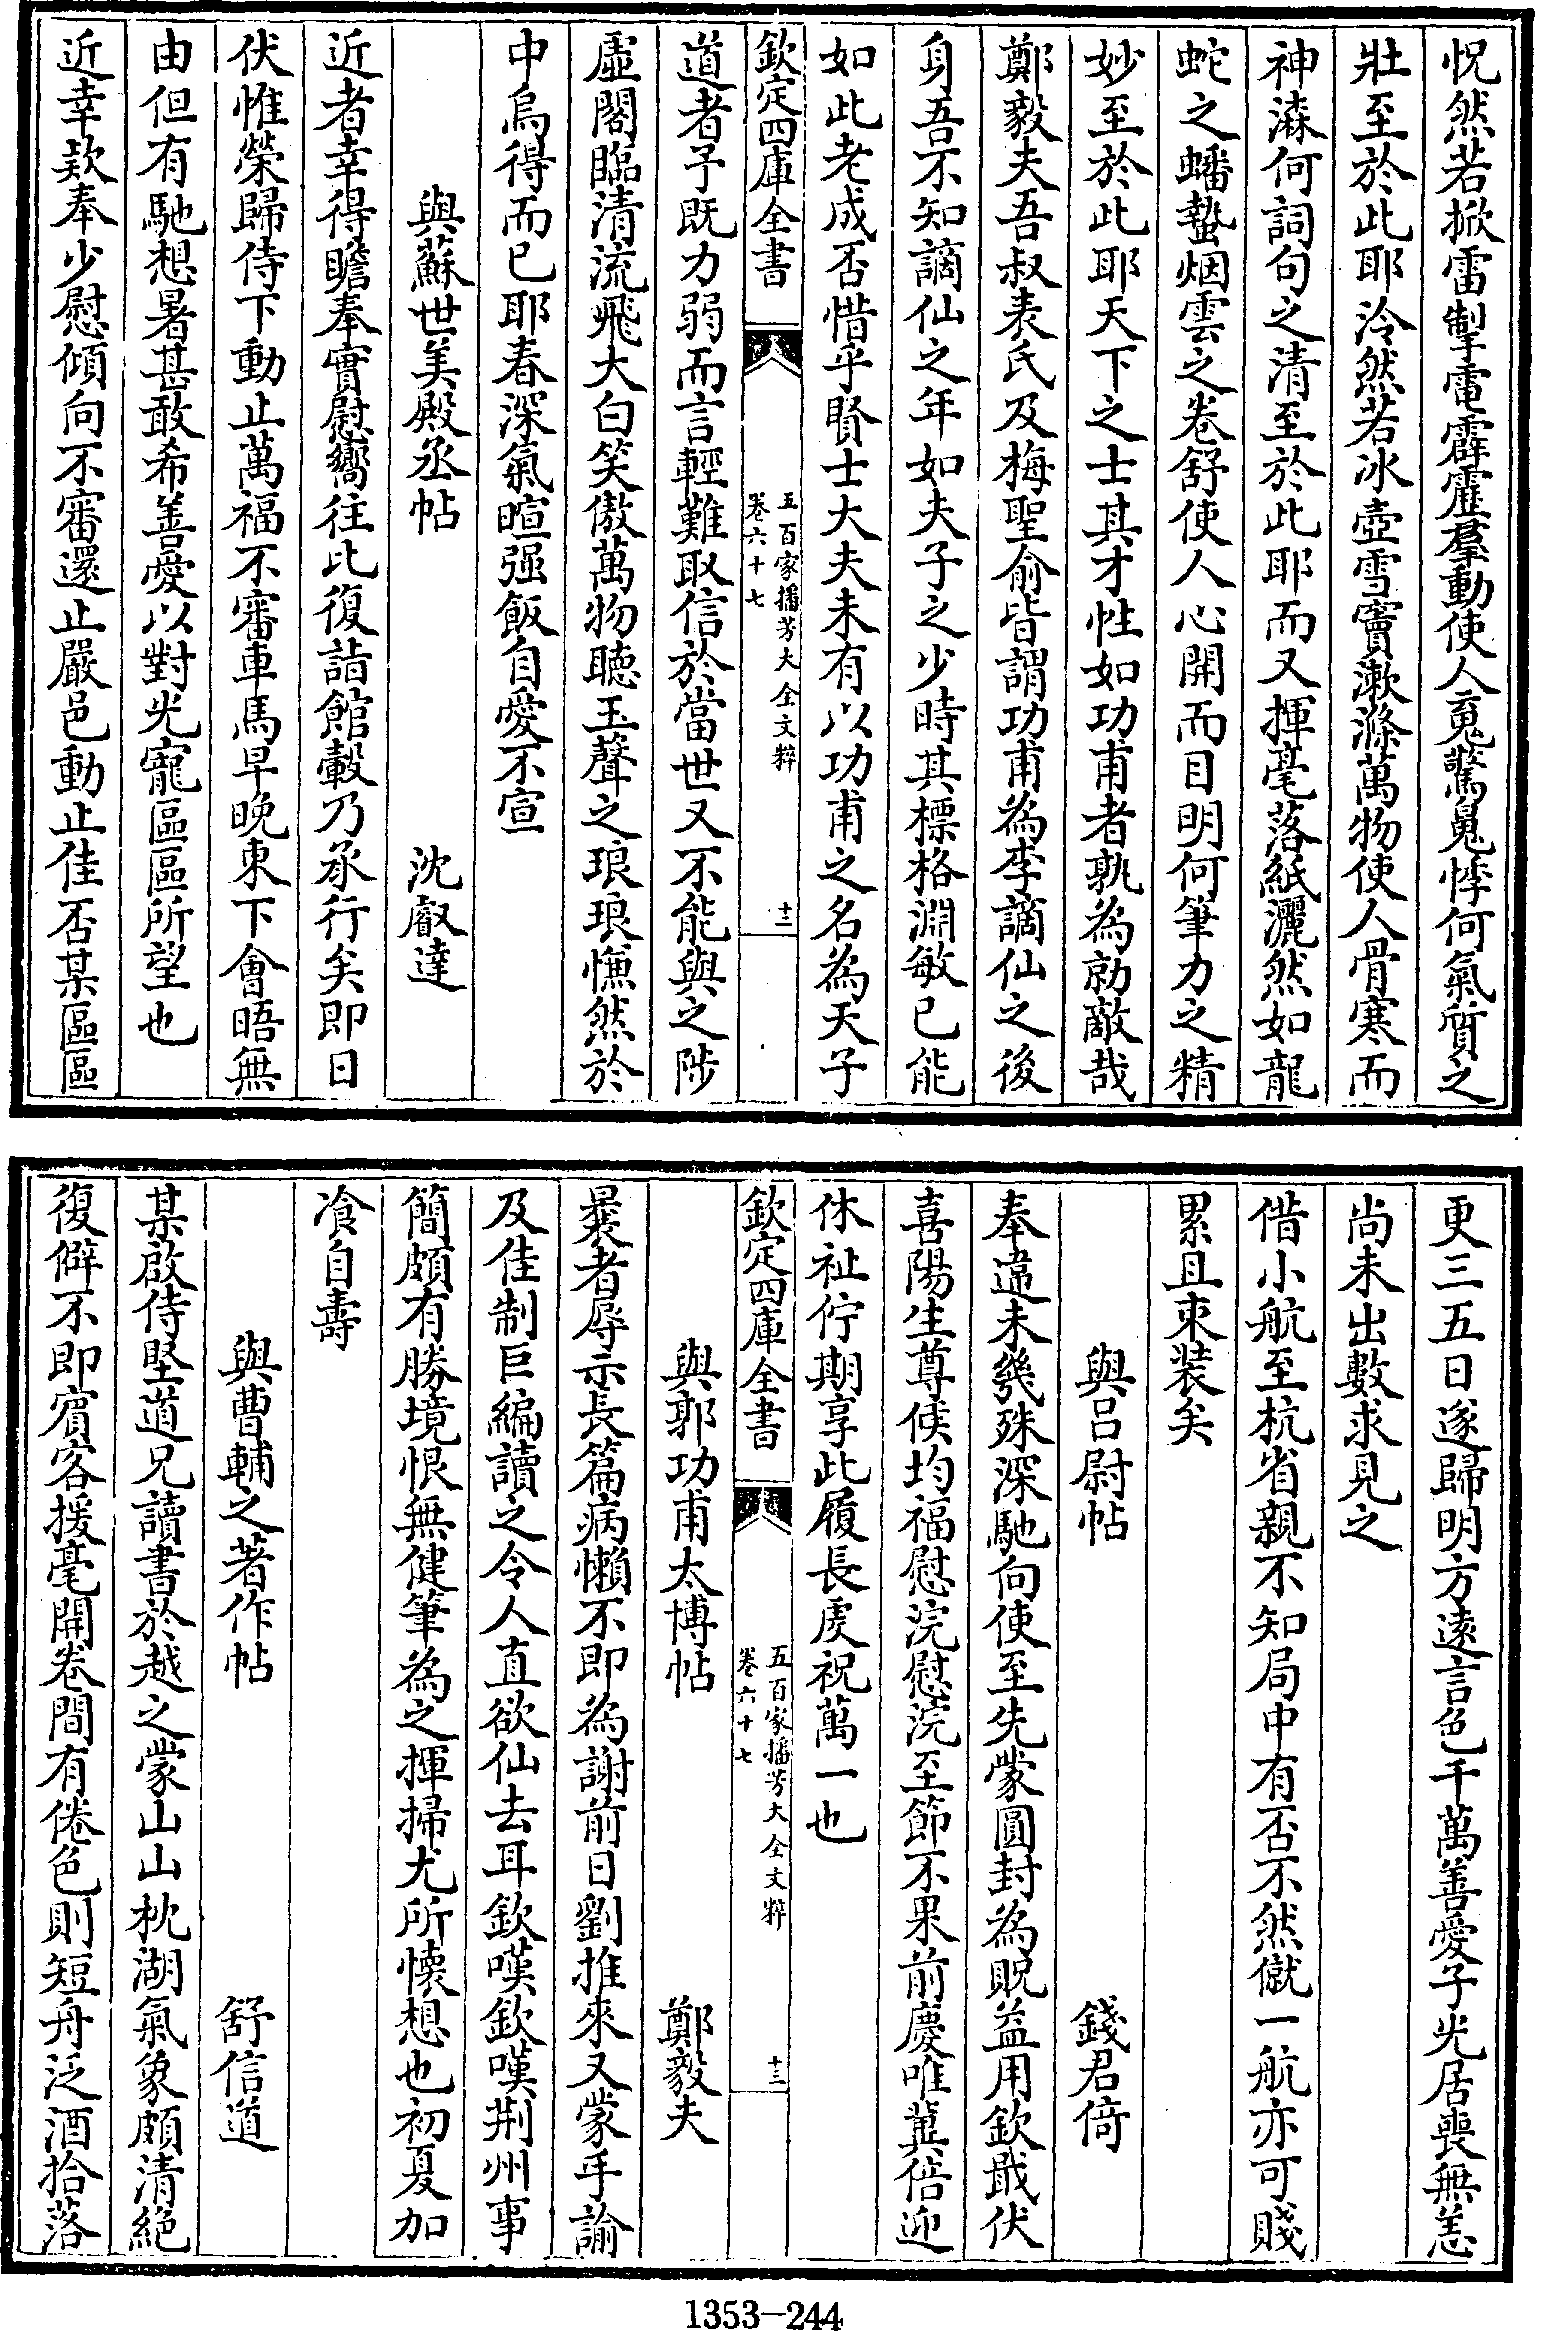 怳然若掀雷掣電霹靂羣動使人䰟驚鬼悸何氣質之
壯至於此耶泠然若冰壺雪竇漱滌萬物使人骨寒而
神森何詞句之清至於此耶而又揮毫落紙灑然如龍
蛇之蟠蟄烟雲之卷舒使人心開而目明何筆力之精
妙至於此耶天下之士其才性如功甫者孰為勍敵哉
鄭毅夫吾叔表氏及梅聖俞皆謂功甫為李謫仙之後
身吾不知謫仙之年如夫子之少時其標格淵敏已能
如此老成否惜乎賢士大夫未有以功甫之名為天子
欽定四庫全書
五百家播芳大全文粹
卷六十七
十二
道者予既力弱而言輕難取信於當世又不能與之陟
虛閣臨清流飛大白笑傲萬物聽玉聲之琅琅憮然於
中烏得而已耶春深氣暄强飯自愛不宣
與蘇世美殿丞帖 沈叡達
近者幸得瞻奉實慰嚮往比復詣館轂乃承行矣即日
伏惟榮歸侍下動止萬福不審車馬早晚東下會晤無
由但有馳想暑甚敢希善愛以對光寵區區所望也
近幸欵奉少慰傾向不審還止嚴邑動止佳否某區區
更三五日遂歸明方遠言色千萬善愛子光居喪無恙
尚未出數求見之
借小航至杭省親不知局中有否不然僦一航亦可賤
累且束裝矣
與呂尉帖 錢君倚
奉違未幾殊深馳向使至先蒙圓封為貺益用欽戢伏
喜陽生尊候均福慰浣慰浣至節不果前慶唯冀倍迎
休祉佇期享此履長虔祝萬一也
欽定四庫全書
五百家播芳大全文粹
卷六十七
十三
與郭功甫太博帖 鄭毅夫
曩者辱示長篇病懶不即為謝前日劉推來又蒙手諭
及佳制巨編讀之令人直欲仙去耳欽嘆欽嘆荆州事
簡頗有勝境恨無健筆為之揮掃尤所懷想也初夏加
飡自壽
與曹輔之著作帖 舒信道
某啟侍堅道兄讀書於越之蒙山山枕湖氣象頗清絕
復僻不即賓客援毫開卷間有倦色則短舟泛酒拾落
1353-244